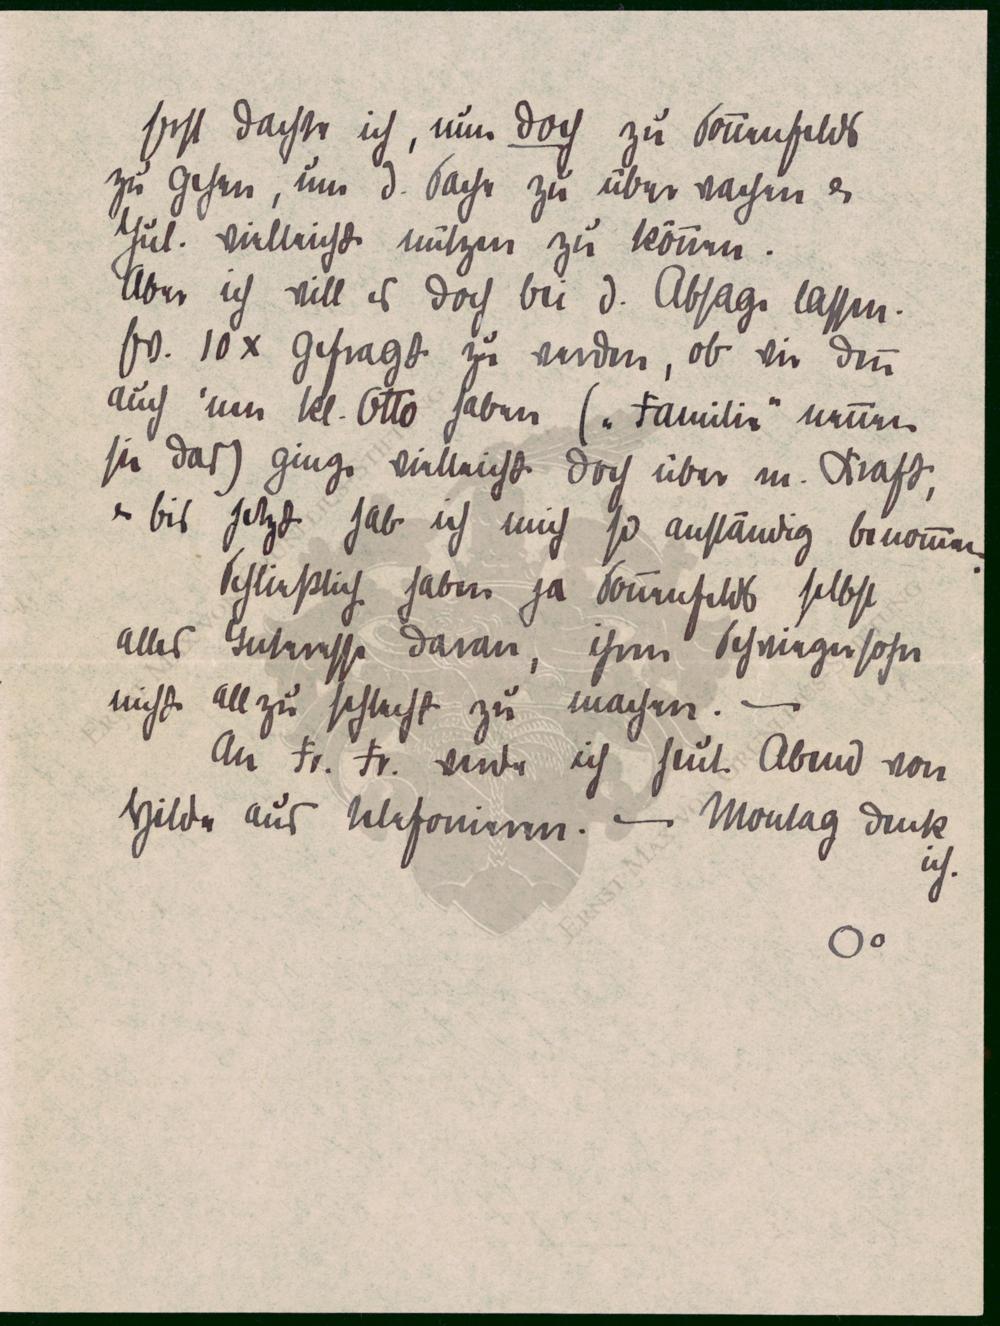 erst dachte ich, nun doch zu Sonnenfelds
zu gehen, um d. Sache zu überwachen &
Jul. vielleicht nützen zu können.
Aber ich will es doch bei d. Absage lassen.
So. 10 x gefragt zu werden, ob wir denn
auch 'nen kl. Otto haben („Familie" nennen
sie das) ginge vielleicht doch über m. Kraft,
& bis jetzt hab ich mich so anständig benommen.
Schließlich haben ja Sonnenfelds selbst
alles Interesse daran, ihren Schwiegersohn
nicht allzu schlecht zu machen. —
An Fr. Fr. werde ich heut Abend von
Hilde aus telefonieren. — Montag denk
ich.